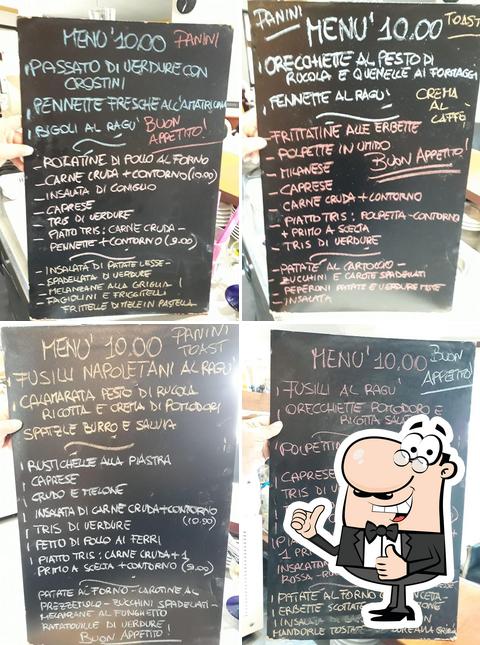 MENU' 10.00 PANINI
PASSATO DI VERDURE CON
CROSTINI
PENNETTE FRESCHE ALL'AMATRICIANA
BIGOLI AL RAGU' BUON
APPETITO!
- ROTATINE DI POLLO AL FORNO
- CARNE CRUDA + CONTORNO (10.00)
- INSALATA DI CONIGLIO
- CAPRESE
- TRIS DI VERDURE
- PIATTO TRIS: CARNE CRUDA -
PENNETTE + CONTORNO (9.00)
- INSALATA DI PATATE LESSE -
SPADELATA DI VERDURE
- MELANZANE ALLA GRIGLIA !
- FAGIOLINI E FRIGGITELLI
FRITTELLE DI MELE IN PASTELLA
PANINI MENU' 10.00 TOAST
ORECCHIETTE AL PESTO DI
RUCOLA E QUENELLE AI FORMAGGI
PENNETTE AL RAGU' CREMA
AL
CAFFÈ
- FRITTATINE ALLE ERBETTE
- POLPETTE IN UMIDO
- MILANESE BUON APPETITO!
- CAPRESE
- CARNE CRUDA + CONTORNO
- PIATTO TRIS: POLPETTA - CONTORNO
+ PRIMO A SCELTA
- TRIS DI VERDURE
- PATATE AL CARTOCCIO -
ZUCCHINI E CAROTE SPADELLATI
PEPERONI PATATE E VERDURE MISTE
- INSALATA
MENU' 10.00 PANINI
TOAST
FUSILLI NAPOLETANI AL RAGU'
CALAMARATA PESTO DI RUCOLA
RICOTTA E CREMA DI POMODORI
SPATZLE BURRO E SALVIA
RUSTICHELLE ALLA PIASTRA
CAPRESE
CRUDO E MELONE
INSALATA DI CARNE CRUDA + CONTORNO
(10.00)
TRIS DI VERDURE
PETTO DI POLLO AI FERRI
PIATTO TRIS: CARNE CRUDA + 1
PRIMO A SCELTA + CONTORNO (9.00)
PATATE AL FORNO - CAROTINE AL
PREZZEMOLO - ZUCCHINI SPADELLATI -
MELANZANE AL FUNGHETTO
RATATOUILLE DI VERDURE
BUON APPETITO!
MENU' 10.00 BUON
APPETITO
FUSILLI AL RAGU'
ORECCHIETTE POMODORO E
RICOTTA
POLPETTINE
CAPRESE
TRIS DI
1 PR
INSALATA
ROSSA -
PATATE AL FORNO
ERBETTE SCOTTATE
INSALATA
MANDORLE TOSTATE